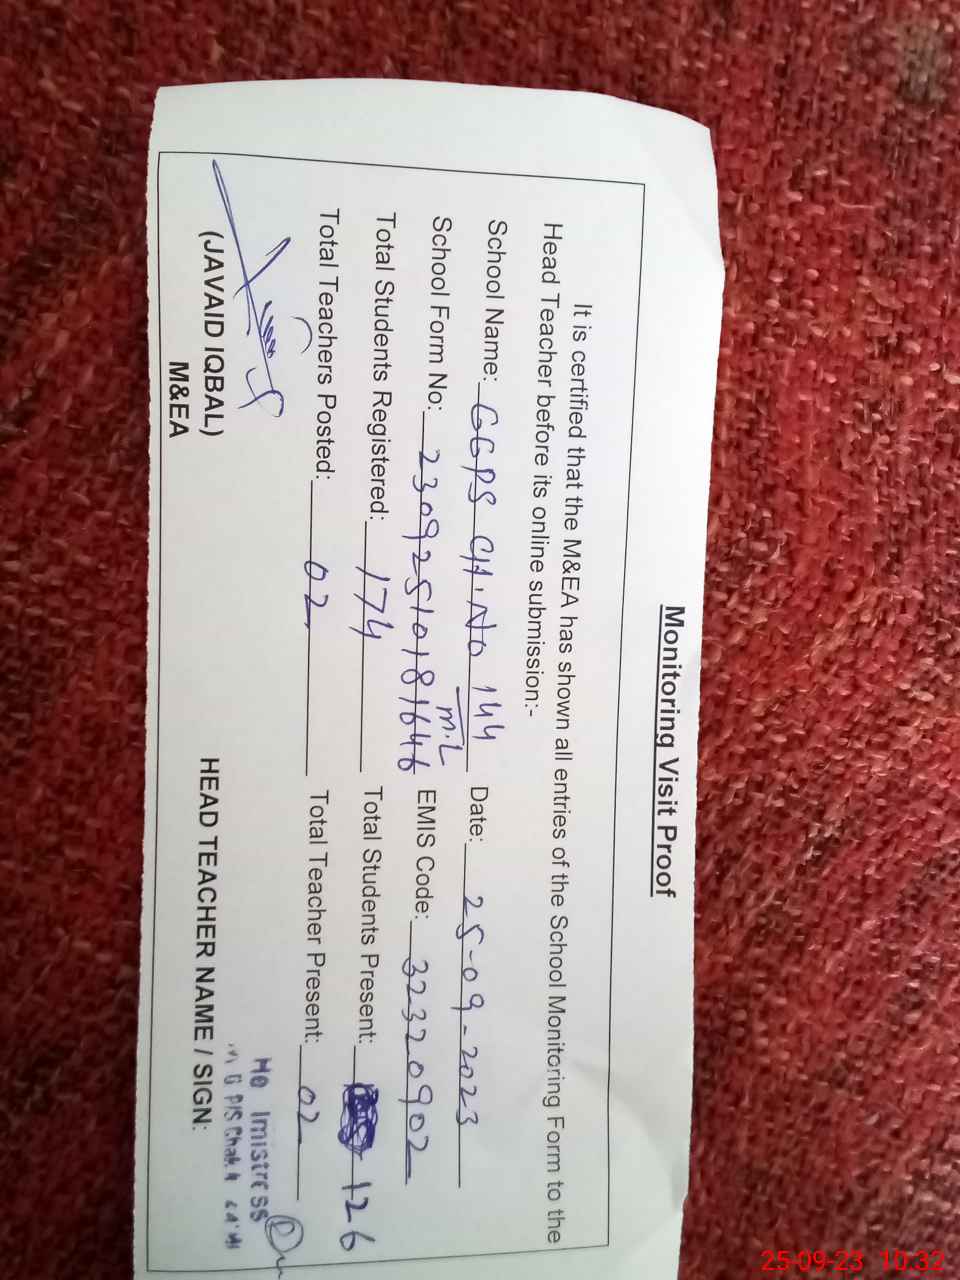 Monitoring Visit Proof
It is certified that the M&EA has shown all entries of the School Monitoring Form to the
Head Teacher before its online submission:-
School Name: GGPS CH.No 144 M.L Date: 25-09-2023
School Form No: 23092510181646 EMIS Code: 32320902
Total Students Registered: 174 Total Students Present: 126
Total Teachers Posted: 02 Total Teacher Present: 02
(JAVAID IQBAL)
M&EA
HEAD TEACHER NAME / SIGN:
25-09-23 10:32